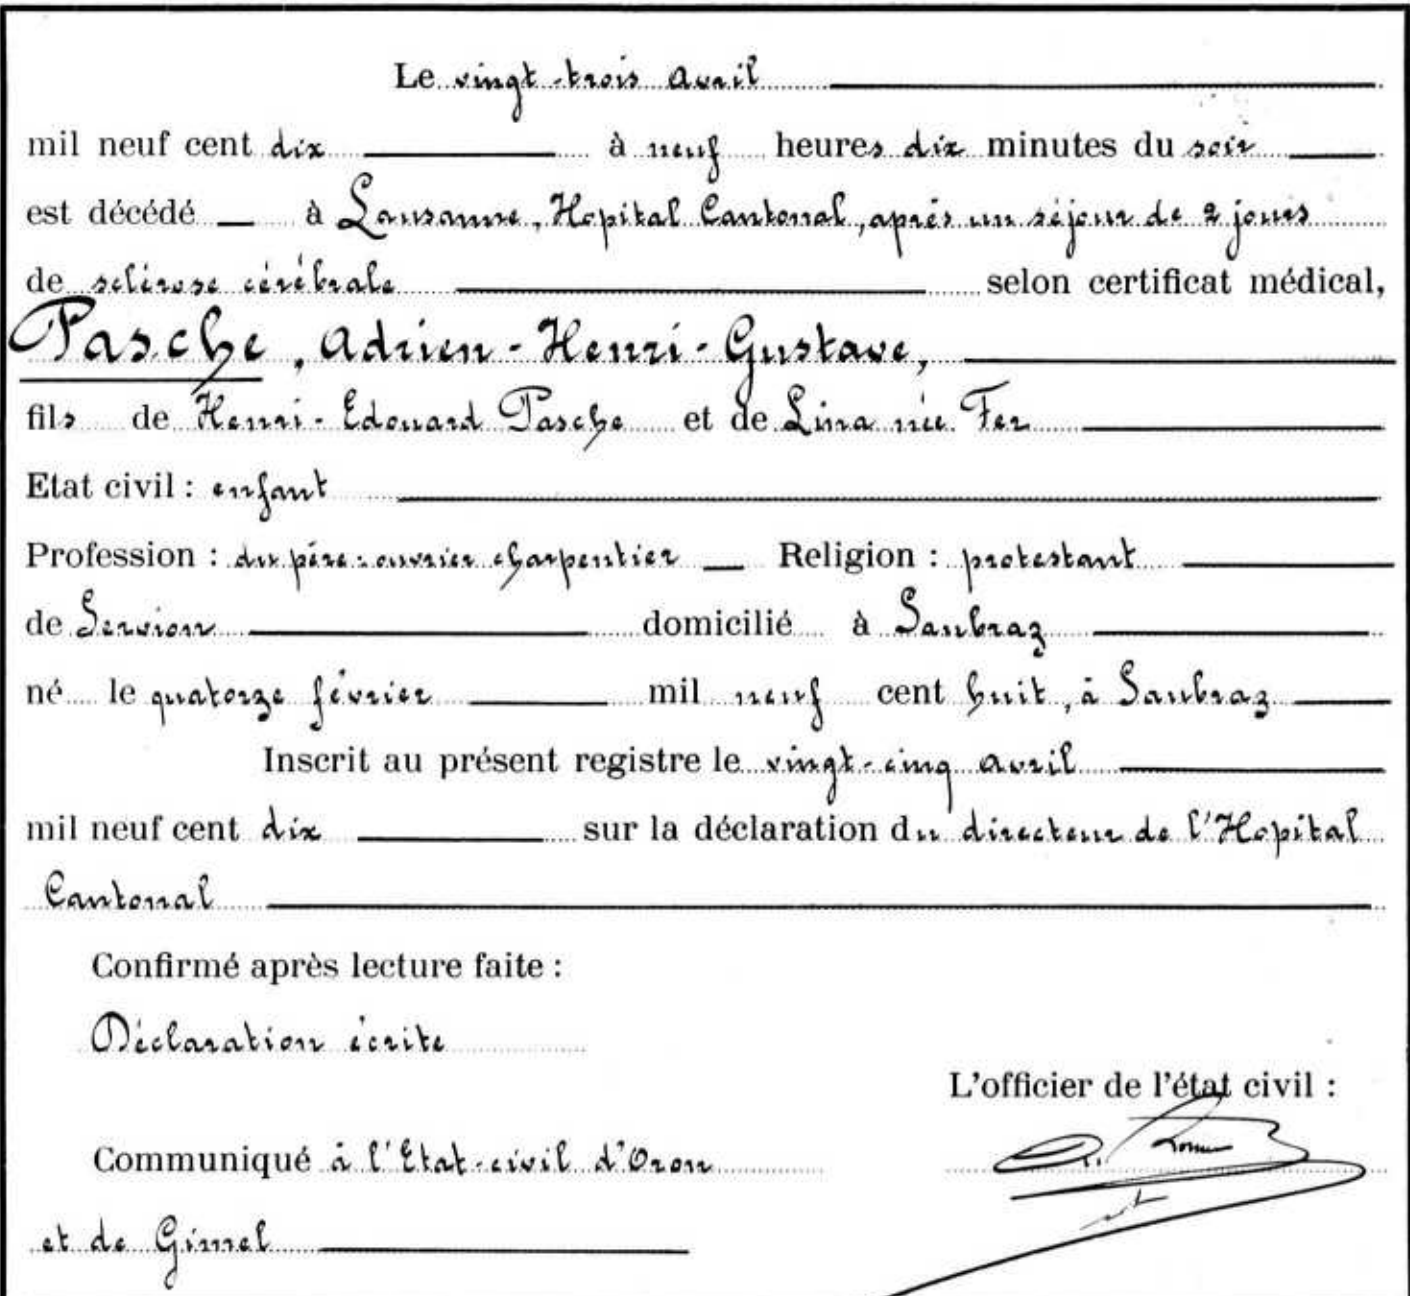 Le vingt-trois avril
mil neuf cent dix à neuf heures dix minutes du soir
est décédé à Lausanne, Hopital Cantonal, après un séjour de 2 jours
de sclérose cérébrale selon certificat médical,
Pasche, Adrien-Henri-Gustave,
fils de Henri-Edouard Pasche et de Lina née Fer
Etat civil : enfant
Profession : du père : ouvrier charpentier Religion : protestant
de Servion domicilié à Saubraz
né le quatorze février mil neuf cent huit, à Saubraz
Inscrit au présent registre le vingt-cinq avril
mil neuf cent dix sur la déclaration du directeur de l'Hopital
Cantonal
Confirmé après lecture faite :
Déclaration écrite
L'officier de l'état civil :
Communiqué à l'Etat-civil d'Oron
et de Gimel